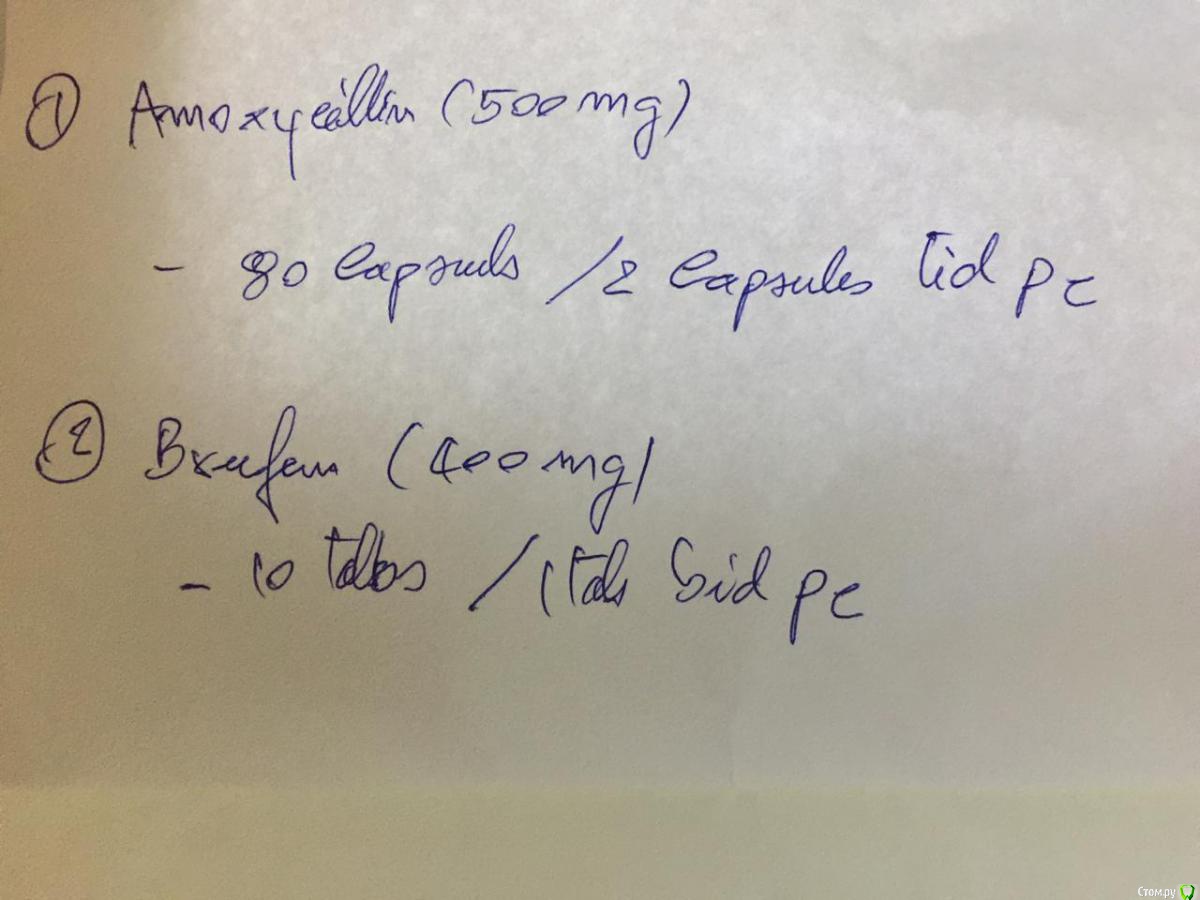 ① Amoxycillin (500 mg)
- 30 capsuls / 2 capsules tid pc
② Brufen (400 mg)
- 10 tabs / 1 tab bid pc
Стом.ру